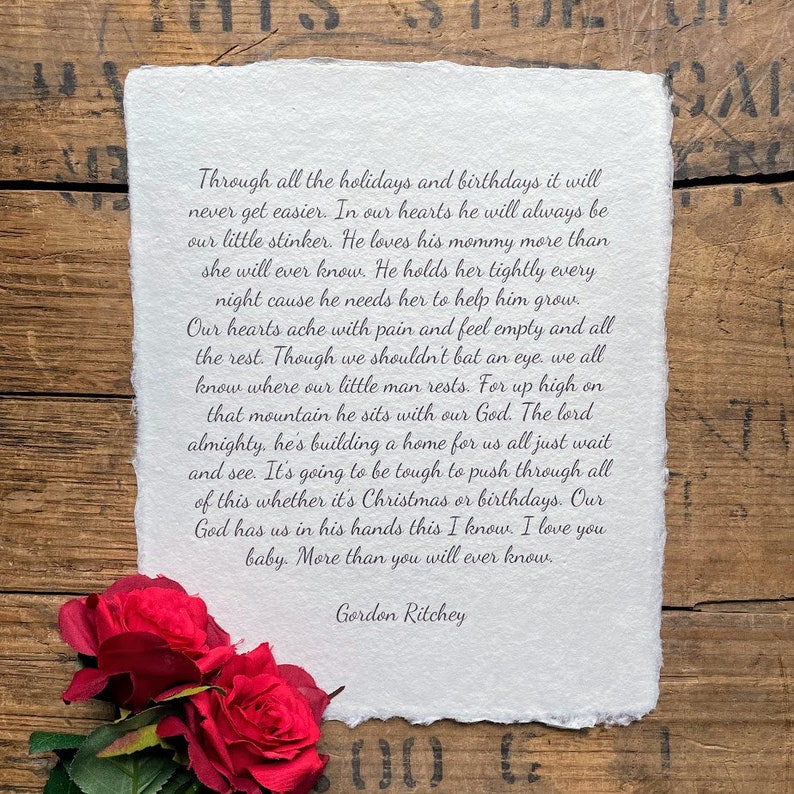 Through all the holidays and birthdays it will
never get easier. In our hearts he will always be
our little stinker. He loves his mommy more than
she will ever know. He holds her tightly every
night cause he needs her to help him grow.
Our hearts ache with pain and feel empty and all
the rest. Though we shouldn't bat an eye. we all
know where our little man rests. For up high on
that mountain he sits with our God. The lord
almighty, he's building a home for us all just wait
and see. It's going to be tough to push through all
of this whether it's Christmas or birthdays. Our
God has us in his hands this I know. I love you
baby. More than you will ever know.
Gordon Ritchey